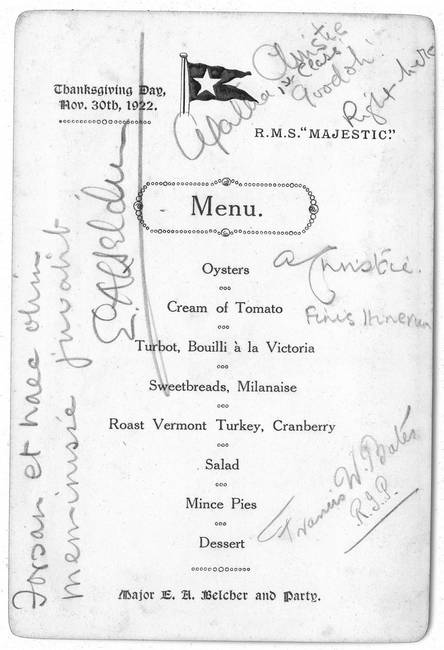 Thanksgiving Day,
Nov. 30th, 1922.
Agatha Christie
1st Class!
Right here
R.M.S. "MAJESTIC."
Menu.
Oysters
Cream of Tomato
Turbot, Bouilli à la Victoria
Sweetbreads, Milanaise
Roast Vermont Turkey, Cranberry
Salad
Mince Pies
Dessert
Major E. A. Belcher and Party.
A Christie.
Finis Itinerum
Francis W. Bates
R.I.P.
E A Belcher
Forsan et haec olim
meminisse juvabit